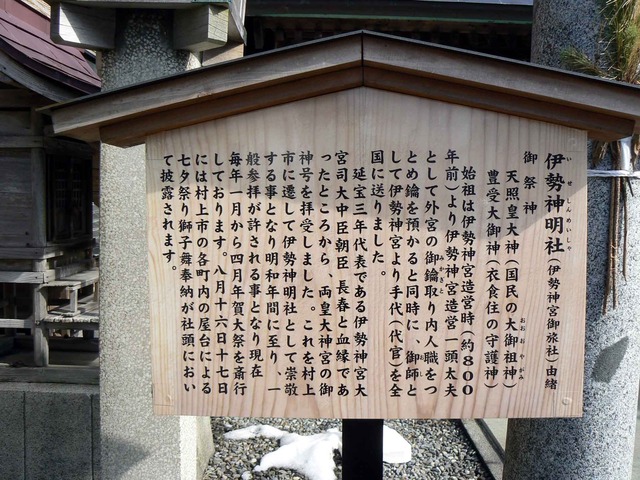 伊勢神明社(伊勢神宮御旅社)由緒
いせしんめいしゃ
御祭神
天照皇大神(国民の大御祖神)
おおみおやがみ
豊受大御神(衣食住の守護神)
始祖は伊勢神宮造営時(約800
年前)より伊勢神宮造営一頭太夫
として外宮の御鑰取り内人職をつ
みかぎとり
とめ鑰を預かると同時に、御師と
して伊勢神宮より手代(代官)を全
国に送りました。
延宝三年代表である伊勢神宮大
宮司大中臣朝臣 長春と血縁であ
ったところから、両皇大神宮の御
神号を拝受しました。これを村上
市に遷して伊勢神明社として崇敬
する事となり明和年間に至り、一
般参拝が許される事となり現在
毎年一月から四月年賀大祭を斎行
しております。八月十六日十七日
には村上市の各町内の屋台による
七夕祭り獅子舞奉納が社頭におい
て披露されます。